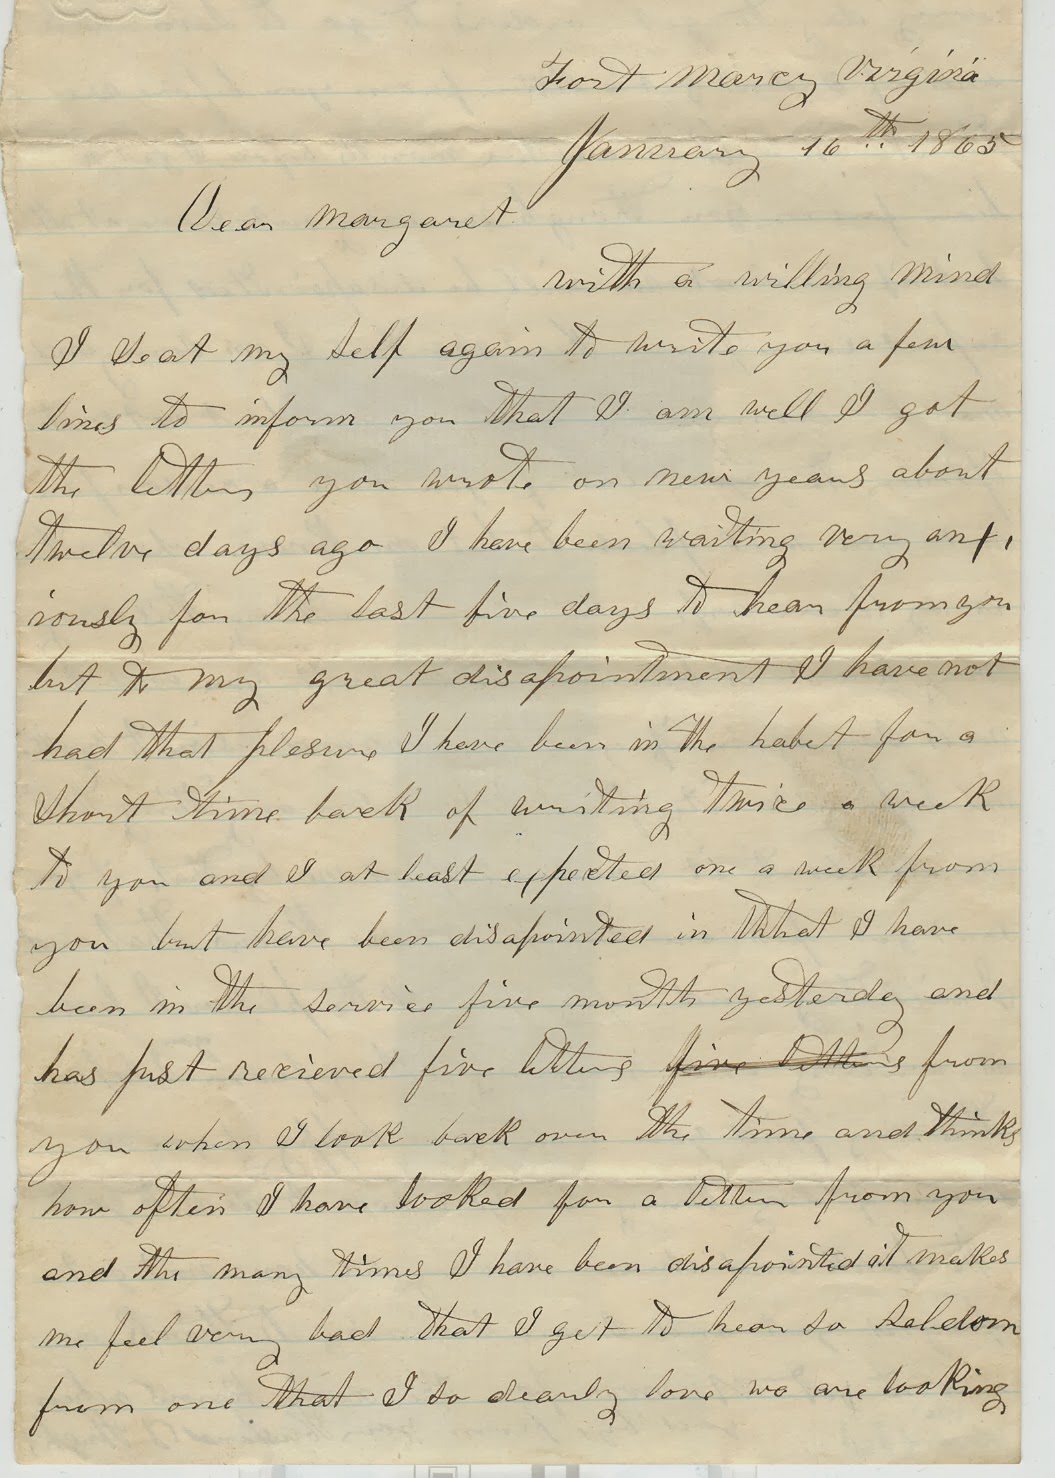 Fort Marcy Virginia
January 16th 1865
Dear Margaret
with a willing mind
I seat my self again to write you a few
lines to inform you that I am well I got
the letter you wrote on new years about
twelve days ago I have been waiting very anx,
iously for the last five days to hear from you
but to my great disapointment I have not
had that plesure I have been in the habet for a
short time back of writing twice a week
to you and I at least expected one a week from
you but have been disapointed in thhat I have
been in the service five month yesterday and
has just recieved five letters five letters from
you when I look back over the time and thinks
how often I have looked for a letter from you
and the many times I have been disapointed it makes
me feel very bad that I get to hear so seldom
from one that I so dearly love we are looking